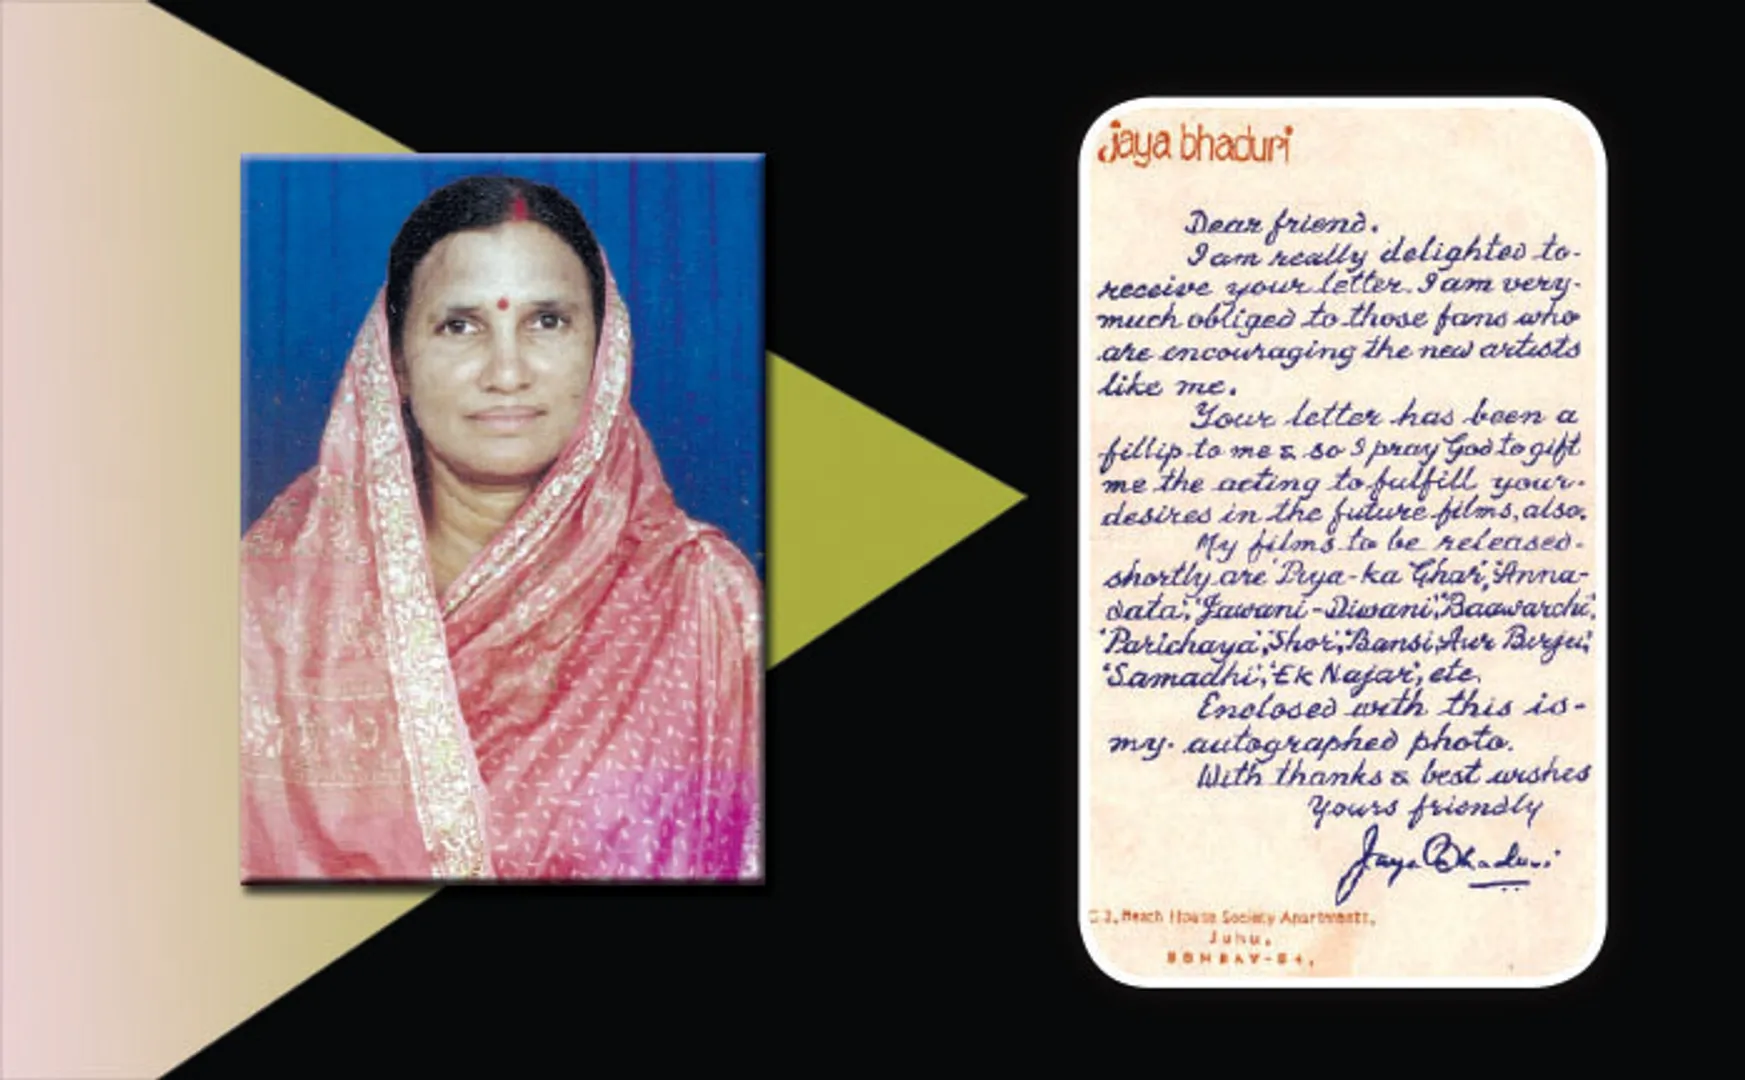 jaya bhaduri
Dear friend.
I am really delighted to-
receive your letter. I am very-
much obliged to those fans who
are encouraging the new artists
like me.
Your letter has been a
fillip to me & so I pray God to gift
me the acting to fulfill your-
desires in the future films, also.
My films to be released-
shortly are 'Piya-ka Ghar', 'Anna-
data', 'Jawani-Diwani', 'Baawarchi',
'Parichaya', 'Shor', 'Bansi Aur Birju',
'Samadhi', 'Ek Najar', etc.
Enclosed with this is-
my autographed photo.
With thanks & best wishes
Yours friendly
Jaya Bhaduri
Beach House Society Apartments,
Juhu,
BOMBAY-54.